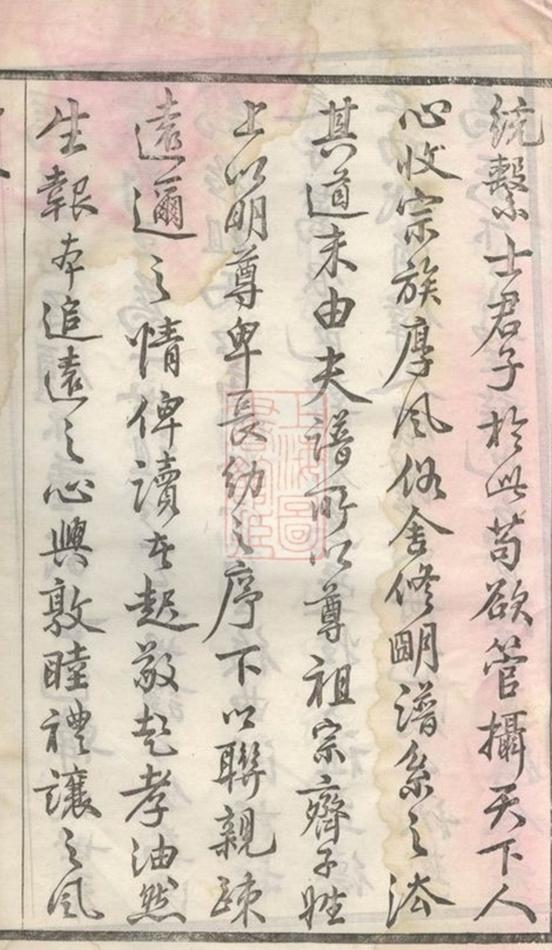 統繫士君子於此苟欲管攝天下人
心收宗族厚風俗舍修明譜系之法
其道末由夫譜所以尊祖宗齊子姓
上以明尊卑長幼之序下以聯親疎
遠邇之情俾讀者起敬起孝油然
生報本追遠之心興敦睦禮讓之風
上海圖書館藏